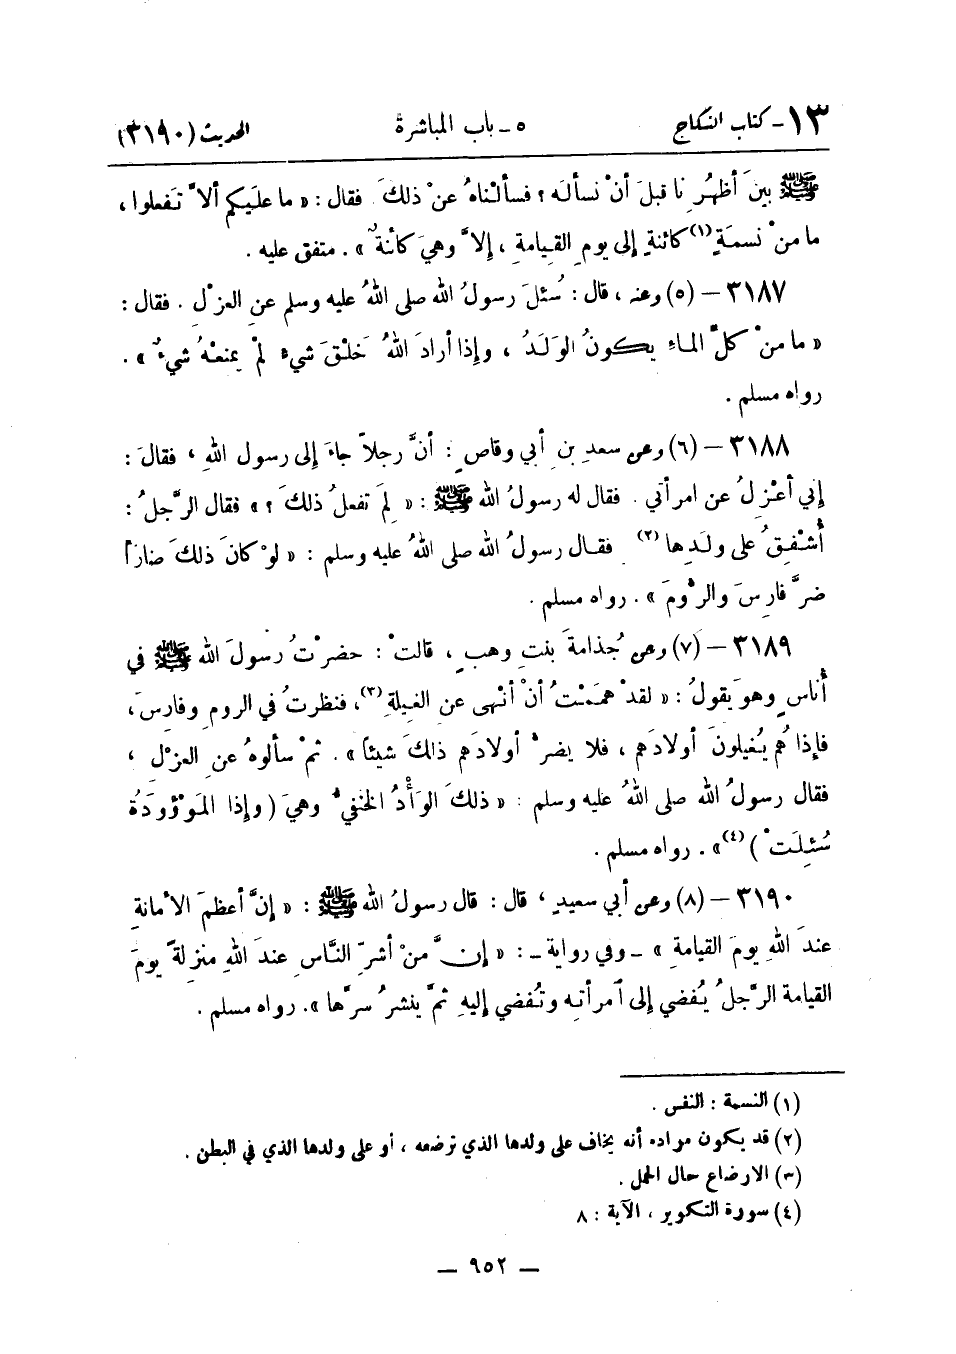 ١٣- كتاب النكاح ٥ - باب المباشرة الحديث (٣١٩٠)
ﷺ بينَ أظهُرِنا قبلَ أنْ نسألَه ؟ فسألْناهُ عنْ ذلكَ فقال : « ما علَيكم ألاَّ تَفعلوا ،
ما منْ نسمَةٍ(١) كائنةٍ إلى يومِ القِيامةِ ، إلاَّ وهيَ كائنةٌ » . متفق عليه .
٣١٨٧ – (٥) وعنه ، قال : سُئلَ رسولُ الله صلى اللهُ عليه وسلم عنِ العزْلِ . فقال :
« ما منْ كلِّ الماءِ يكونُ الوَلَدُ ، وإذا أرادَ اللهُ خلْقَ شيءٍ لمْ يمنعْهُ شيءٌ » .
رواه مسلم .
٣١٨٨ – (٦) وعن سعدِ بنِ أبي وقاصٍ : أنَّ رجلاً جاءَ إلى رسول اللهِ ، فقالَ :
إني أعْزِلُ عن امرأتي . فقال له رسولُ الله ﷺ : « لِمَ تفعلُ ذلكَ ؟ » فقال الرَّجلُ :
أُشْفِقُ على ولَدِها (٢) فقال رسولُ الله صلى اللهُ عليه وسلم : « لوْ كانَ ذلكَ ضاراً
ضرَّ فارِسَ والرُّومَ » . رواه مسلم .
٣١٨٩ – (٧) وعن جُذامةَ بنتِ وهبٍ ، قالتْ : حضرْتُ رسولَ الله ﷺ في
أُناسٍ وهوَ يقولُ : « لقدْ هممْتُ أنْ أنْهى عن الغيلةِ (٣) ، فنظرتُ في الرومِ وفارِسَ ،
فإذا هُم يُغيلونَ أولادَهم ، فلا يضرُّ أولادَهم ذالكَ شيئاً » . ثمْ سألوهُ عنِ العزْلِ ،
فقال رسولُ الله صلى اللهُ عليه وسلم : « ذلكَ الوَأْدُ الخفيُّ وهيَ ( وإذا المَوْؤودَةُ
سُئِلَتْ ) (٤)» . رواه مسلم .
٣١٩٠ – (٨) وعن أبي سعيدٍ ، قال : قال رسولُ الله ﷺ : « إنَّ أعظمَ الأمانةِ
عندَ اللهِ يومَ القيامةِ » ـ وفي رواية ـ : « إنَّ منْ أشرِّ النَّاسِ عندَ اللهِ منزلةً يومَ
القيامة الرَّجلُ يُفضي إلى امرأته وتُفضي إليهِ ثمَّ ينشرُ سرَّها » . رواه مسلم .
(١) النسمة : النفس .
(٢) قد يكون مراده أنه يخاف على ولدها الذي ترضعه ، أو على ولدها الذي في البطن .
(٣) الارضاع حال الحمل .
(٤) سورة التكوير ، الآية : ٨
— ٩٥٢ —